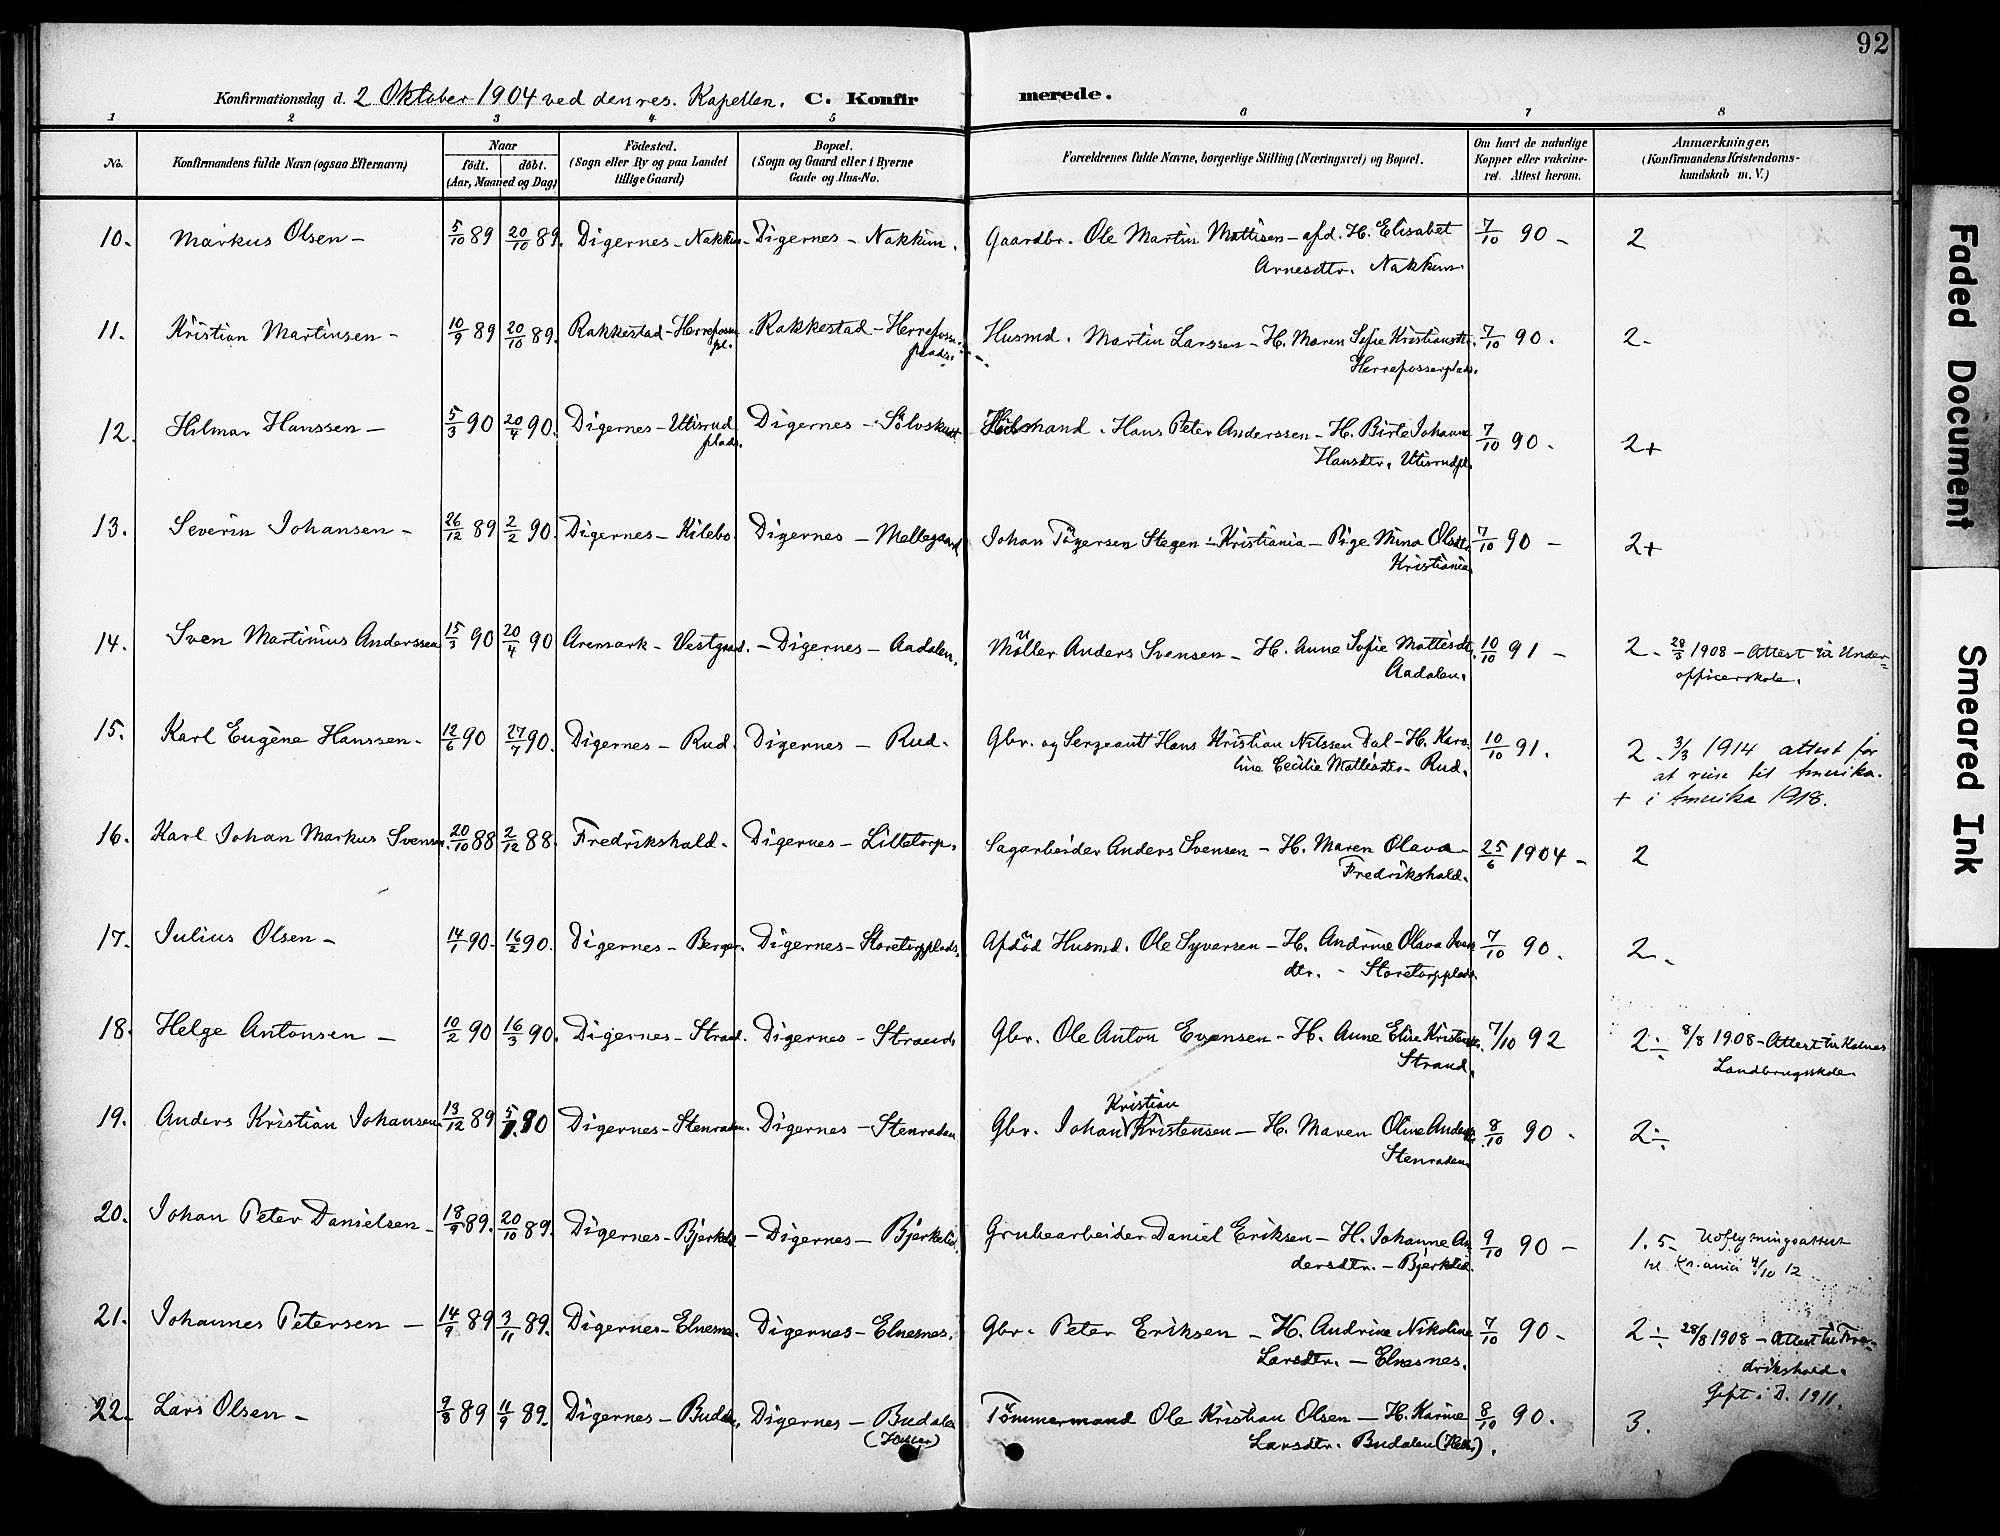 92
Konfirmationsdag d. 2 Oktober 1904 ved den res. Kapellan. C. Konfirmerede.
1 2 3 4 5 6 7 8
No. Konfirmandens fulde Navn (ogsaa Efternavn) Naar født. døbt. (Aar, Maaned og Dag) Fødested. (Sogn eller By og paa Landet tillige Gaard) Bopæl. (Sogn og Gaard eller i Byerne Gade og Hus-No. Forældrenes fulde Navne, borgerlige Stilling (Næringsvei) og Bopæl. Om havt de naturlige Kopper eller vakcineret. Attest herom. Anmærkninger. (Konfirmandens Kristendomskundskab m. V.)
10. Markus Olsen – 5/10 89 20/10 89. Digernes – Nakkim – Digernes – Nakkim. Gaardbr. Ole Martin Mattisen – afd. H. Elisabet 7/10 90 – 2
Arnesdtr. Nakkim.
11. Kristian Martinsen – 10/9 89 20/10 89. Rakkestad – Herrefossn pl. Rakkestad – Herrefossn plads. Husmd. Martin Larssen – H. Maren Sofie Kristiansdtr. 7/10 90. 2 –
Herrefosserplads.
12. Hilmar Hanssen – 5/3 90 20/4 90. Digernes – Utisrud plads. Digernes – Sölvskudt mand. Hans Peter Anderssen – H. Birte Johanne 7/10 90. 2+
Hansdtr. Utisrudpl.
13. Severin Johansen – 26/12 89 2/2 90. Digernes – Kilebo. Digernes – Mellegaard Johan Tögersen Stegen i Kristiania – Pige Mina Olsdtr. 7/10 90 – 2+
Kristiania.
14. Sven Martinius Anderssen 15/3 90 20/4 90 Aremark – Vestgaard. – Digernes – Aadalen. Möller Anders Svensen – H. Anne Sofie Mattisdt. 10/10 91 – 2 – 28/3 1908 – Attest til Under=
Aadalen. officerskole.
15. Karl Eugène Hanssen – 12/6 90 27/7 90. Digernes – Rud. Digernes – Rud. Gbr. og Sergeant Hans Kristian Nilssen Dal – H. Karo 10/10 91. 2 – 3/3 1914 attest for
line Cecilie Mattisdtr – Rud. at reise til Amerika.
+ i Amerika 1918.
16. Karl Johan Markus Svensen. 20/10 88 2/12 88. Fredrikshald. Digernes – Lilletorp. Sagarbeider Anders Svensen – H. Maren Olava 25/6 1904 – 2
Fredrikshald.
17. Julius Olsen – 14/1 90. 16/2 90. Digernes – Berger. Digernes – Storetorpplads. Afdöd Husmd. Ole Syversen – H. Andrine Olava Ivers 7/10 90. 2 –
dtr. – Storetorpplads.
18. Helge Antonsen – 10/2 90 16/3 90. Digernes – Strand. Digernes – Strand. Gbr. Ole Anton Evensen – H. Anne Elise Kristensdtr. 7/10 92 2 ÷ 8/8 1908 – Attest til Kalnes
Strand. Landbrugsskole.
19. Anders Kristian Johansen. 13/12 89 5/1 90 Digernes – Stenraden. Digernes – Stenraden Gbr. Johan Kristian Kristensen – H. Maren Oline Andersdtr. 8/10 90 – 2 ÷
Stenraden.
20. Johan Peter Danielsen – 18/9 89. 20/10 89. Digernes – Bjerkelid – Digernes – Bjerkelid. Grubearbeider Daniel Eriksen – H. Johanne An 9/10 90 – 1.5 – Udflytningsattest
dersdtr. – Bjerkelid. til Kr.ania 4/10 12
21. Johannes Petersen – 14/9 89 3/11 89. Digernes – Elnesnes. Digernes – Elnesnes. Gbr. Peter Eriksen – H. Andrine Nikoline 7/10 90 – 2 ÷ 28/8 1908 – Attest til Fre=
Larsdtr. – Elnesnes. drikshald.
Gift i D. 1911.
22. Lars Olsen – 9/8 89 11/9 89. Digernes – Budalen, Digernes – Budalen Tömmermand Ole Kristian Olsen – H. Karine 8/10 90. 3.
Larsdtr. Budalen
Faded Document
Smeared Ink